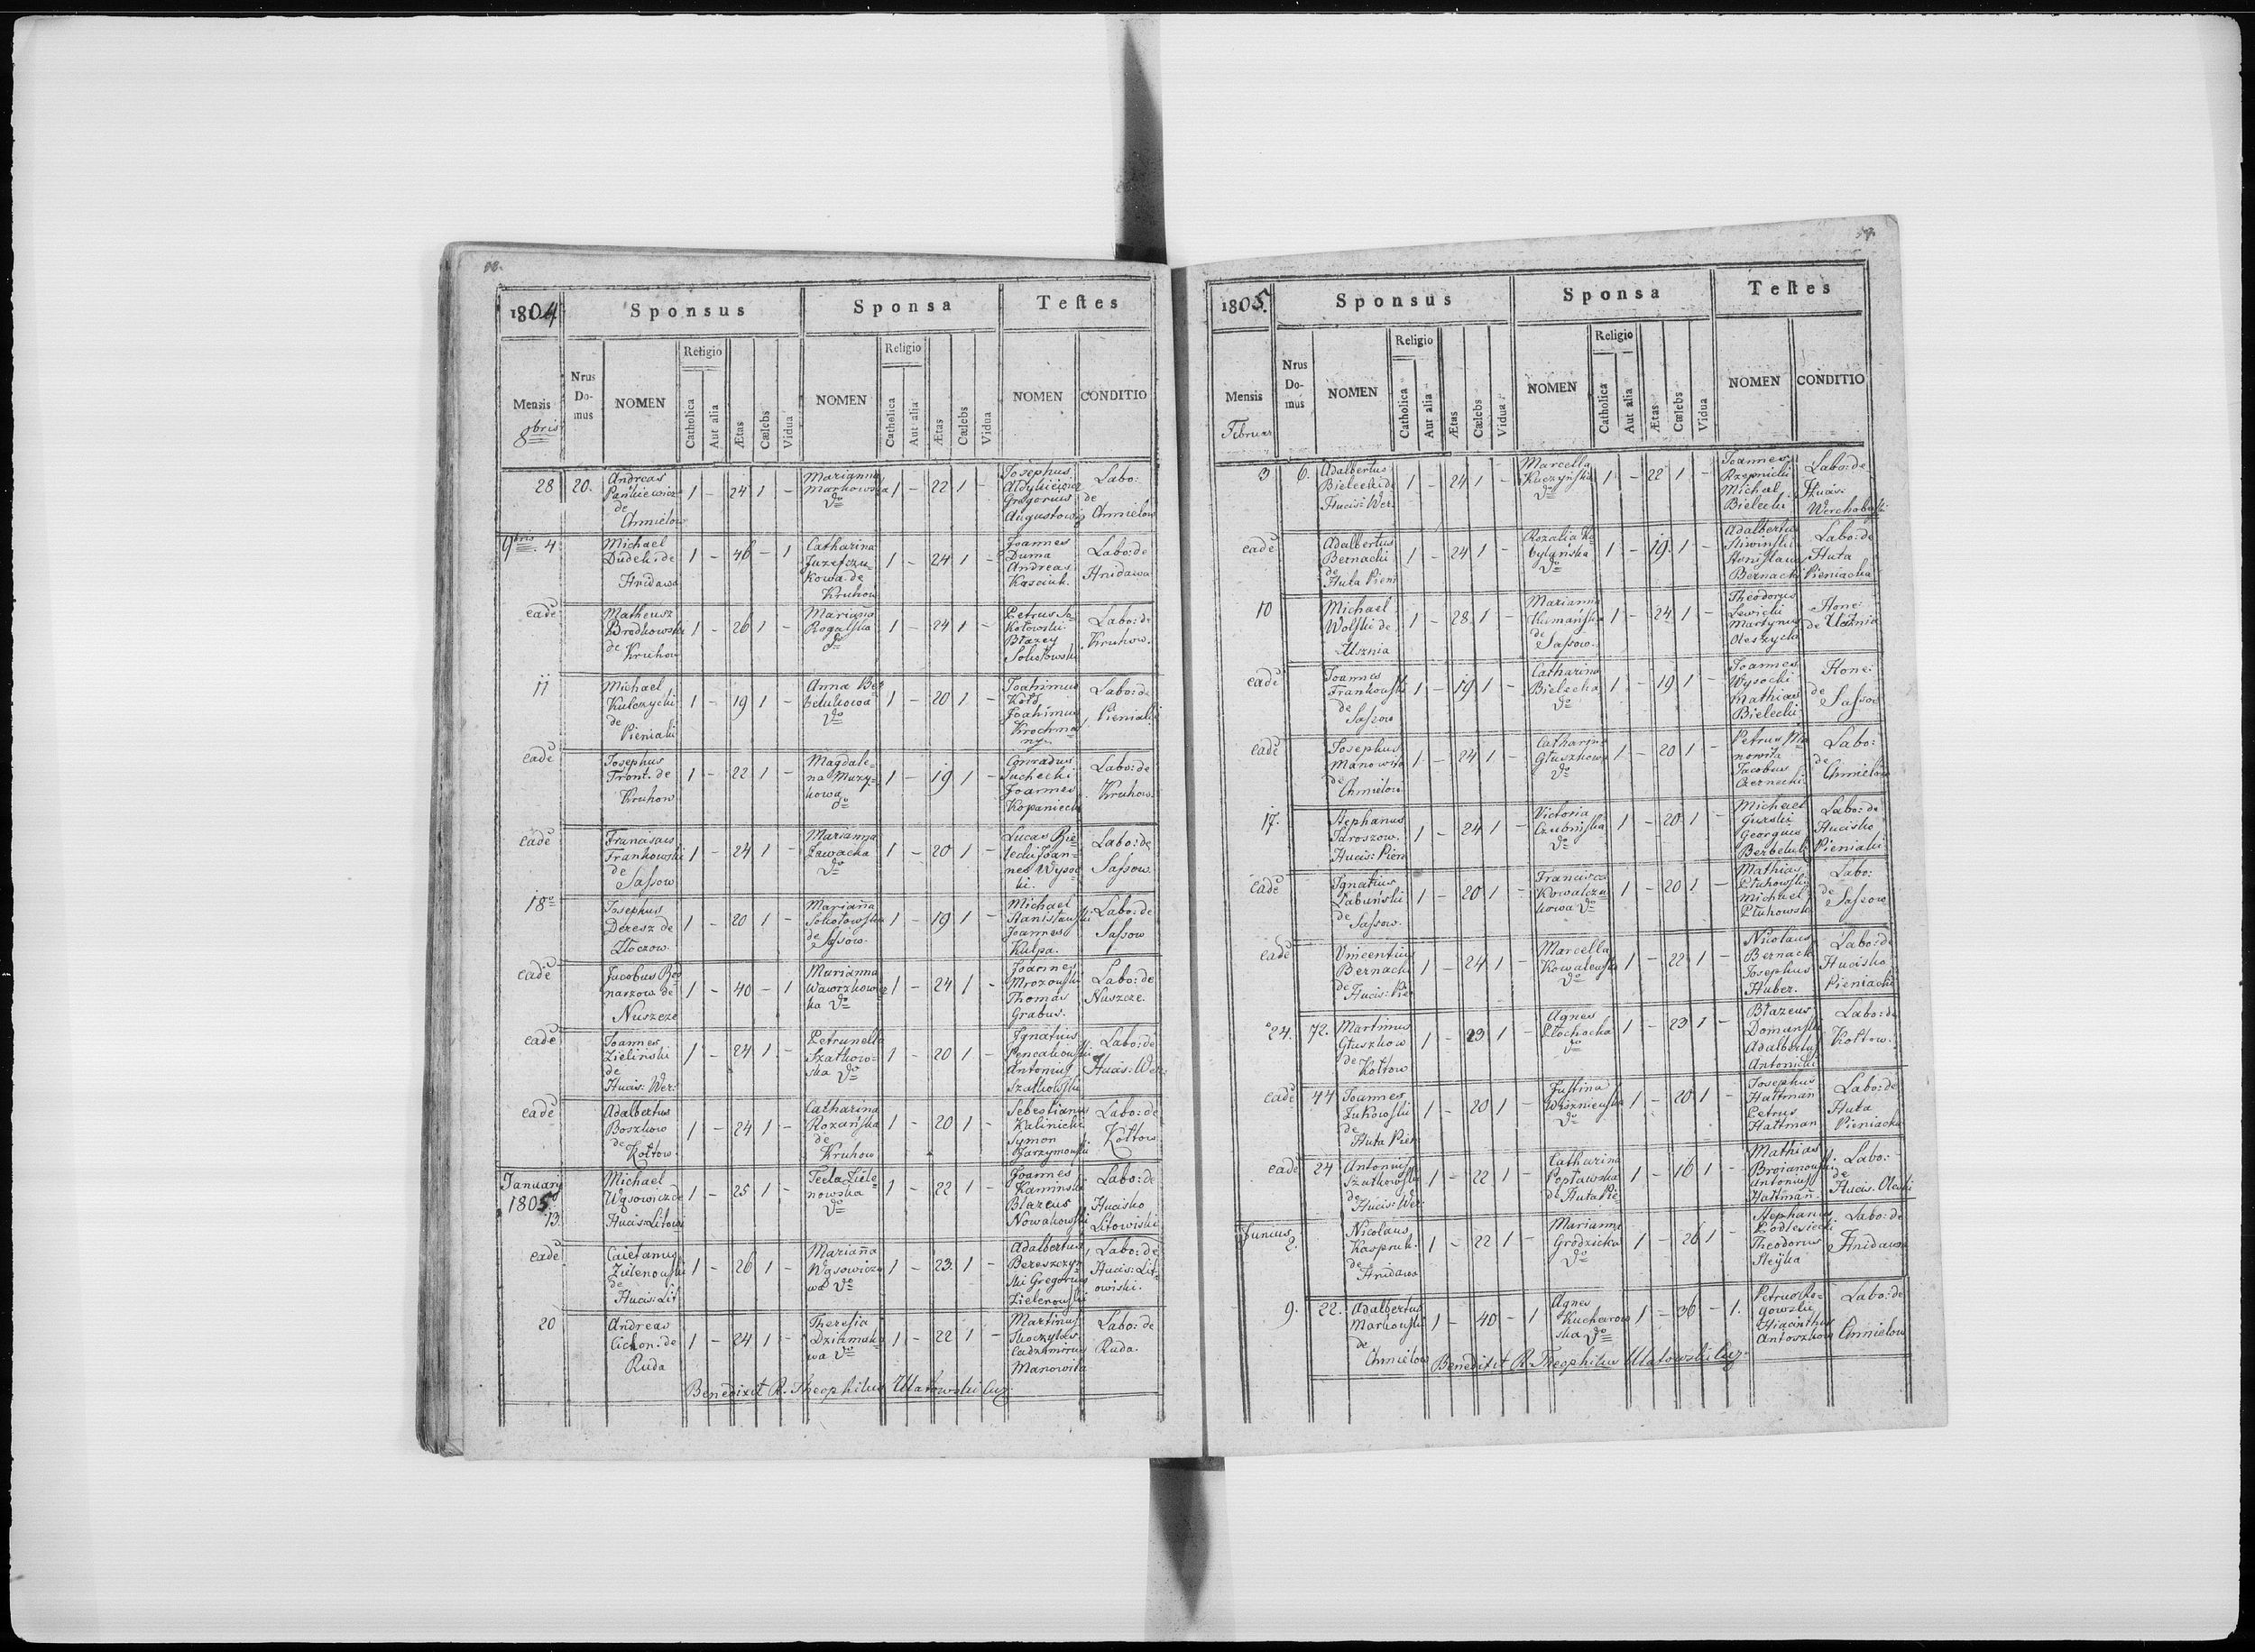 58.
1804
Sponsus
Sponsa
Testes
Mensis
8bris
Nrus Do-mus
NOMEN
Religio
Catholica
Aut alia
Ætas
Cœlebs
Vidua
NOMEN
Religio
Catholica
Aut alia
Ætas
Cœlebs
Vidua
NOMEN
CONDITIO
28 20. Andreas Pańkiewicz de Chmielow 1 - 24 1 - Marianna Markowska do 1 - 22 1 - Josephus Gregorius Augustowicz Labo: de Chmielow
9bris 4 Michael Dudek de Hnidawa 1 - 46 - 1 Catharina Juzefczu-kowa de Kruhow 1 - 24 1 - Joannes Duma Andreas Kasciuk. Labo: de Hnidawa
eade Matheusz Brodkowski de Kruhow 1 - 26 1 - Mariana Rogalska do 1 - 24 1 - Petrus So-kołowski Błazey Sokołowski Labo: de Kruhow.
11 Michael Kulczycki de Pieniaki 1 - 19 1 - Anna do 1 - 20 1 - Joahimus Kołd Joahimus Krochma-ny Labo: de Pieniaki
eade Josephus Front. de Kruhow 1 - 22 1 - Magdale-na Muzy-kowa do 1 - 19 1 - Conradus Suchecki Joannes Kopaniecki Labo: de Kruhow.
eade Franciscus Frankowski de Sassow 1 - 24 1 - Marianna Zawacka do 1 - 20 1 - Lucas Bie-lecki Joan-nes Wysoc-ki. Labo: de Sassow.
18o Josephus Deresz de Złoczow. 1 - 20 1 - Mariana Sokołowska de Sassow. 1 - 19 1 - Michael Stanisławski Joannes Kulpa. Labo: de Sassow
eade Jacobus Bed-narzow de Nuszcze 1 - 40 - 1 Marianna Wawrzkowic-ka do 1 - 24 1 - Joannes Mrozowski Thomas Grabus. Labo: de Nuszcze.
eade Joannes Zieliński de Hucis: Wer: 1 - 24 1 - Petrunella Szatkow-ska do 1 - 20 1 - Ignatius Pencakowski Antonius Szatkowski Labo: de Hucis: Wer:
eade Adalbertus Boszkow de Kołtow. 1 - 24 1 - Catharina Rozańska de Kruhow 1 - 20 1 - Sebestianus Kalinicki Symon Labo: de Kołtow
January 1805 13. Michael Wąsowicz de Hucis: Litowi 1 - 25 1 - Tecla Ziele-nowska do 1 - 22 1 - Joannes Kaminski Blazeus Nowakowski Labo: de Hucisko Litowiski
eade Caietanus Zielenowski de Hucis: Lit 1 - 26 1 - Mariana Wąsowiczo-wa do 1 - 23 1 - Adalbertus Bereszczyn-ski Gregorius Zielenowski Labo: de Hucis: Lit-owiski.
20 Andreas Cichon. de Ruda 1 - 24 1 - Theresia Dziamako-wa do 1 - 22 1 - Martinus Skoczylas Manowita Labo: de Ruda.
Benedixit R. Theophilus Ulatowski
59.
1805.
Sponsus
Sponsa
Testes
Mensis
Februar
Nrus Do-mus
NOMEN
Religio
Catholica
Aut alia
Ætas
Cœlebs
Vidua
NOMEN
Religio
Catholica
Aut alia
Ætas
Cœlebs
Vidua
NOMEN
CONDITIO
3 6. Adalbertus Bielecki de Hucis: Wer: 1 - 24 1 - Marcella Kuczyńska do 1 - 22 1 - Joannes Rzepnicki Michael Bielecki Labo: de Hucis:
eade Adalbertus Bernacki de Huta Pien 1 - 24 1 - Rozalia Ko-bylańska do 1 - 19. 1 - Adalbertus Sliwinski Stanislaus Bernacki Labo: de Huta Pieniacka
10 Michael Wolski de Usznia 1 - 28 1 - Marianna Humańska de Sassow. 1 - 24 1 - Theodorus Lewicki Martynus Oleszycki Hone: de Usznia
eade Joannes Frankowski de Sassow 1 - 19 1 - Catharina Bielecka do 1 - 19 1 - Joannes Wysocki Mathias Bielecki Hone: de Sassow
eade Josephus Manowita de Chmielow. 1 - 24 1 - Catharina Głuszkowa do 1 - 20 1 - Petrus Ma-nowita Jacobus Czernecki Labo: de Chmielow
17. Stephanus Jaroszow. Hucis: Pien 1 - 24 1 - Victoria Czubińska do 1 - 20 1 - Michael Gurski Georgius Berbeluk Labo: de Hucisko Pieniaki
eade Ignatius Łabuński de Sassow. 1 - 20 1 - Francisca Kowalczu-kowa do 1 - 20 1 - Mathias Płuhowski Michael Płuhowski Labo: de Sassow
eade Vincentius Bernacki de Hucis: Pie 1 - 24 1 - Marcella Kowalewska do 1 - 22 1 - Nicolaus Bernacki Josephus Huber. Labo: de Hucisko Pieniacki
24. 72. Martinus Głuszkow de Kołtow 1 - 23 1 - Agnes Płochocka do 1 - 23 1 - Błazeus Domanski Adalbertus Antonicki Labo: de Kołtow.
eade 44 Joannes Zukowski de Huta Pien 1 - 20 1 - Justina Wiszniewska do 1 - 20 1 - Josephus Hattman Petrus Hattman Labo: de Huta Pieniacka
eade 24 Antonius Szatkowski de Hucis: Wer 1 - 22 1 - Catharina Popławska de Huta Pie 1 - 16 1 - Mathias Broianowski Antonius Hattman. Labo: de Hucis. Oleski
Junius 2. Nicolaus Kaspruk. de Hnidawa 1 - 22 1 - Marianna Grodzicka do 1 - 26 1 - Stephanus Podlesiecki Theodorus Steyka Labo: de Hnidawa
9. 22. Adalbertus Markowski de Chmielow 1 - 40 - 1 Agnes Kucharow-ska do 1 - 36 - 1. Petrus Ro-gowski Hiacinthus Antoszkow Labo: de Chmielow
Benedixit R. Theophilus Ulatowski